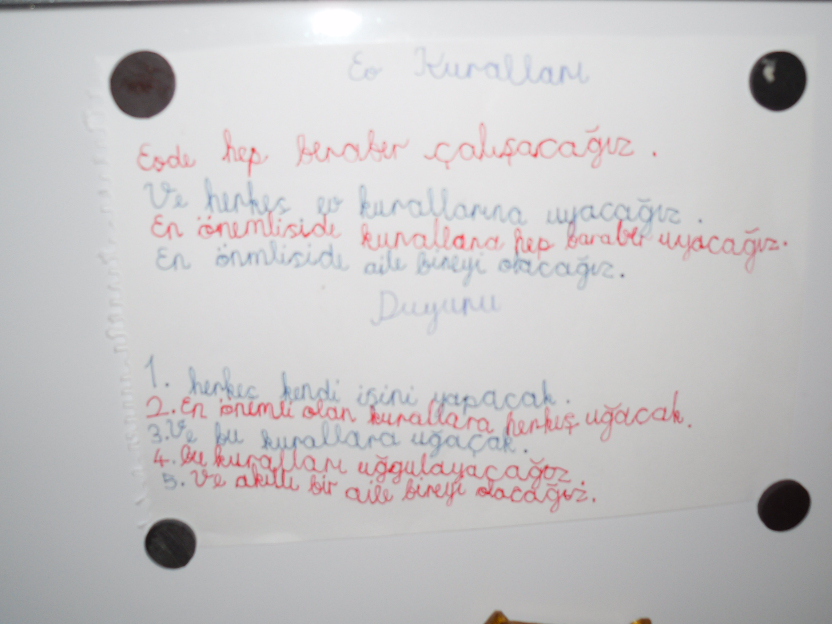 Ev Kuralları
Evde hep beraber çalışacağız.
Ve herkes ev kurallarına uyacağız.
En önemliside kurallara hep baraber uyacağız.
En önmliside aile bireyi olacağız.
Duyuru
1. herkes kendi işini yapacak.
2. En önemli olan kurallara herkeş uğacak.
3. Ve bu kurallara uğaçak.
4. bu kuralları uğgulayacağoz.
5. Ve akıllı bir aile bireyi olacağız.